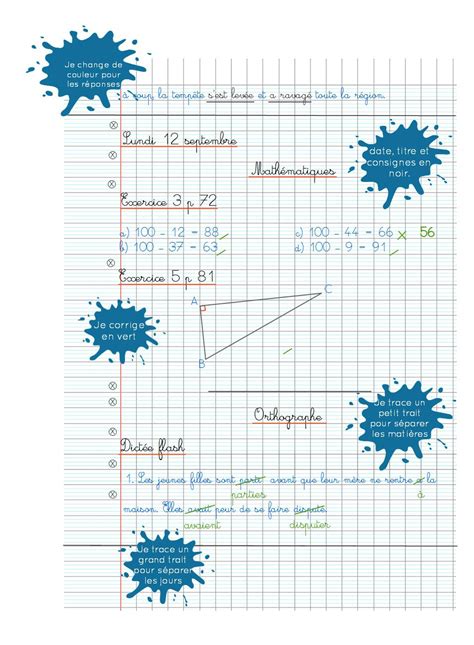 Je change de
couleur pour
les réponses
à coup, la tempête s'est levée et a ravagé toute la région.
Lundi 12 septembre
date, titre et
consignes en
noir.
Mathématiques
Exercice 3 p 72
a) 100 - 12 = 88
c) 100 - 44 = 66 x 56
b) 100 - 37 = 63
d) 100 - 9 = 91
Exercice 5 p 81
A
C
B
Je corrige
en vert
Je trace un
petit trait
pour séparer
les matières
Orthographe
Dictée flash
1. Les jeunes filles sont parti avant que leur mère ne rentre a la
parties
à
maison. Elles avait peur de se faire disputé.
avaient
disputer
Je trace un
grand trait
pour séparer
les jours